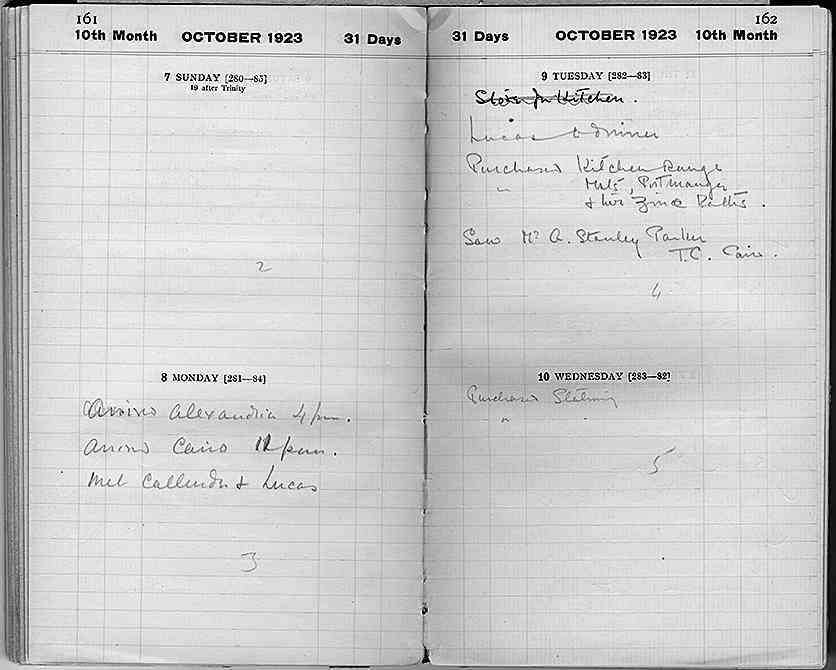 161
10th Month OCTOBER 1923 31 Days
7 SUNDAY [280—85]
19 after Trinity
2
8 MONDAY [281—84]
Arrived Alexandria 4 pm.
Arrived Cairo 11 pm.
Met Callender & Lucas
3
162
31 Days OCTOBER 1923 10th Month
9 TUESDAY [282—83]
for Kitchen.
Lucas to dinner
Purchased Kitchen Range
" Mats,
& Zinc Baths.
Saw Mr A. Stanley Parker
T.C. Cairo.
4
10 WEDNESDAY [283—82]
Purchased
"
5